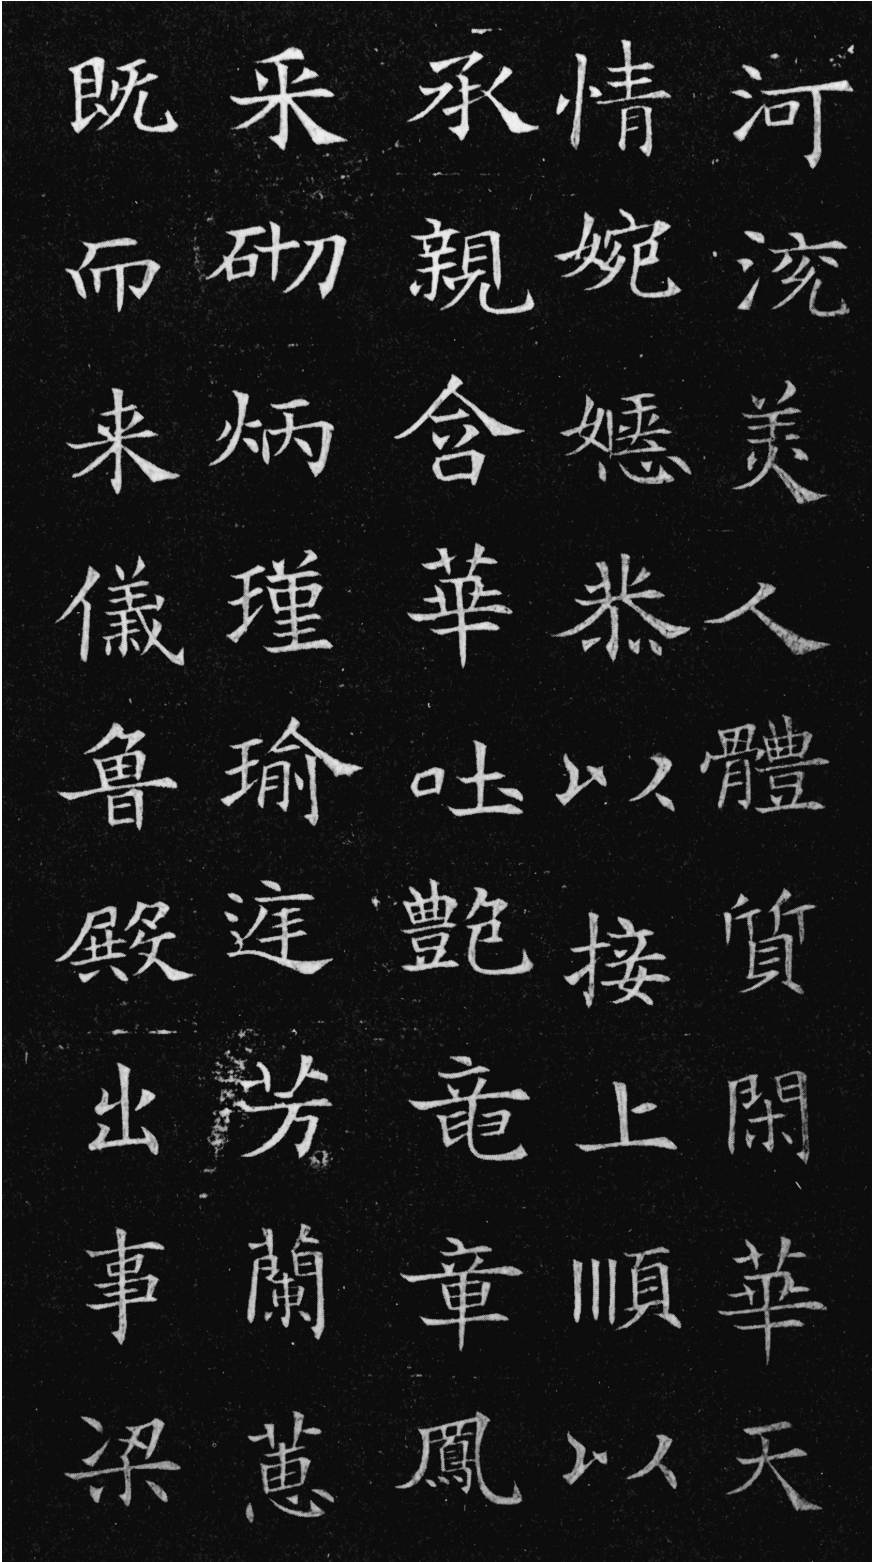 河流美人體質閑華天
情婉嫕恭以接上順以
承親含華吐艶竜章鳳
采砌炳瑾瑜庭芳蘭蕙
既而来儀魯殿出事梁